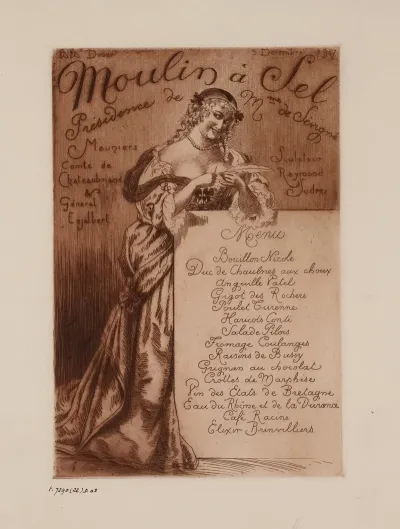 3 Décembre
Moulin à Sel
Présidence de Mme de Sévigné
Meuniers
Comte de
Chateaubriand
&
Général
Sculpteur
Raymond
Sudre
Menu
Bouillon Nicole
Duc de Chaulnes aux choux
Anguille Vatel
Gigot des Rochers
Poulet Turenne
Haricots Conti
Salade Pilois
Fromage Coulanges
Raisins de Bussy
Grignan au chocolat
Crottes de Marphise
Vin des Etats de Bretagne
Eau du Rhône et de la Durance
Café Racine
Elixir Brinvilliers